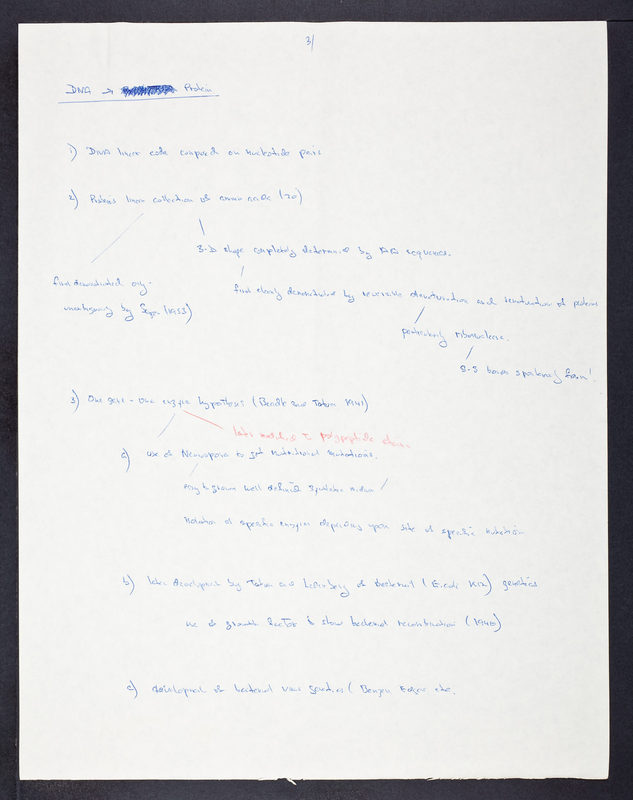 3/
DNA → Protein
1) DNA linear code composed on nucleotide pairs
2) Proteins linear collection of amino acids (20)
3-D shape completely determined by AA sequences.
first demonstrated
unambiguously by Sanger (1953)
first clearly demonstrated by reversible denaturation and renaturation of proteins
particularly ribonuclease.
S-S bonds spontaneously form!
3) One gene - one enzyme hypothesis (Beadle and Tatum 1941)
later modified to polypeptide chain.
a) use of Neurospora to get nutritional mutations.
easy to grow on well defined synthetic media
Isolation of specific enzymes depending upon site of specific mutation
b) later development by Tatum and Lederberg of bacterial (E. coli K12) genetics
use of growth factor to show bacterial recombination (1946)
c) development of bacterial virus genetics (Benzer, Edgar etc.